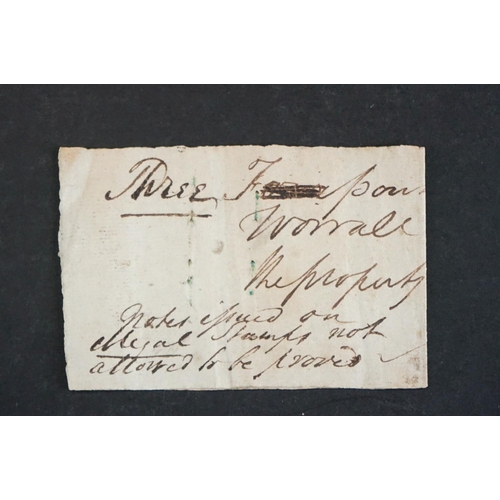 Three F pou
Worrall
the property
Notes issued on
illegal Stamps not
allowed to be proved